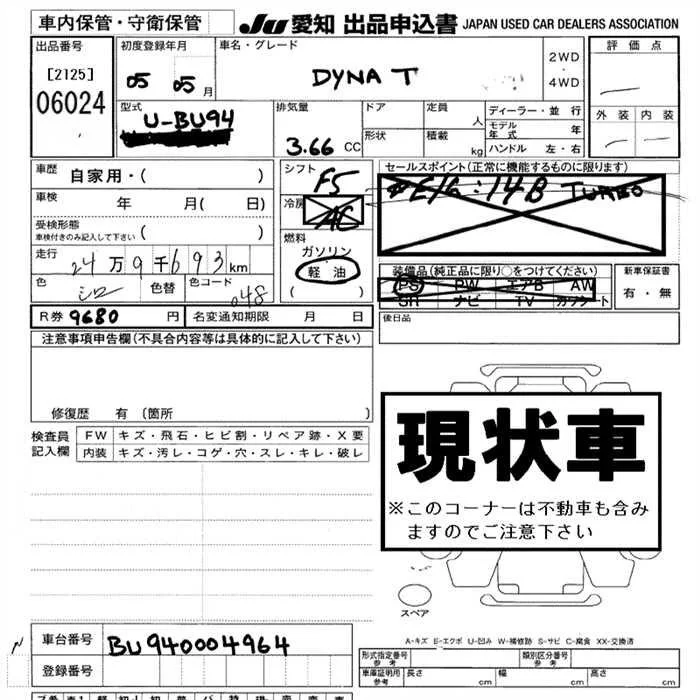 車内保管・守衛保管
JU 愛知 出品申込書 JAPAN USED CAR DEALERS ASSOCIATION
出品番号
[2125]
06024
初度登録年月
05 05 月
車名・グレード
DYNA T
2WD
・
4WD
評価点
外装 内装
型式
U-BU94
排気量
3.66 CC
ドア
形状
定員
人
積載
kg
ディーラー・並行
モデル年式 年
ハンドル 左・右
車歴
自家用・( )
車検 年 月( 日)
受検形態
車検付きのみ記入して下さい ( )
走行
24万9千693km
色
シロ
色替
色コード
048
シフト
F5
冷房
AC
燃料
ガソリン
軽油
( )
セールスポイント(正常に機能するものに限ります)
E/G:14B TURBO
装備品(純正品に限り○をつけてください)
PS PW エアB AW
SR ナビ TV カワシート
新車保証書
有・無
R券 9680 円 名変通知期限 月 日
後日品
注意事項申告欄(不具合内容等は具体的に記入して下さい)
修復歴 有(箇所 )
検査員
記入欄
FW キズ・飛石・ヒビ割・リペア跡・X要
内装 キズ・汚レ・コゲ・穴・スレ・キレ・破レ
現状車
※このコーナーは不動車も含み
ますのでご注意下さい
スペア
A-キズ E-エクボ U-凹み W-補修跡 S-サビ C-腐食 XX-交換済
車台番号 BU940004964
登録番号
形式指定番号
参考
類別区分番号
参考
車庫証明用
参考
長さ cm 幅 cm 高さ cm